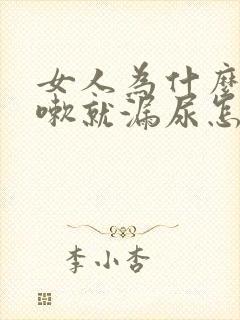 女人為什麼
嗽就漏尿怎
李小杏